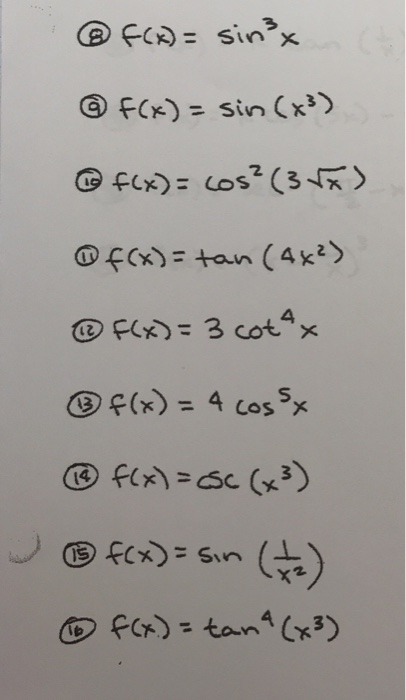 ⑧ f(x) = sin³x
⑨ f(x) = sin (x³)
⑩ f(x) = cos² (3√x)
⑪ f(x) = tan (4x²)
⑫ f(x) = 3 cot⁴x
⑬ f(x) = 4 cos⁵x
⑭ f(x) = csc (x³)
⑮ f(x) = sin (1/x²)
⑯ f(x) = tan⁴ (x³)